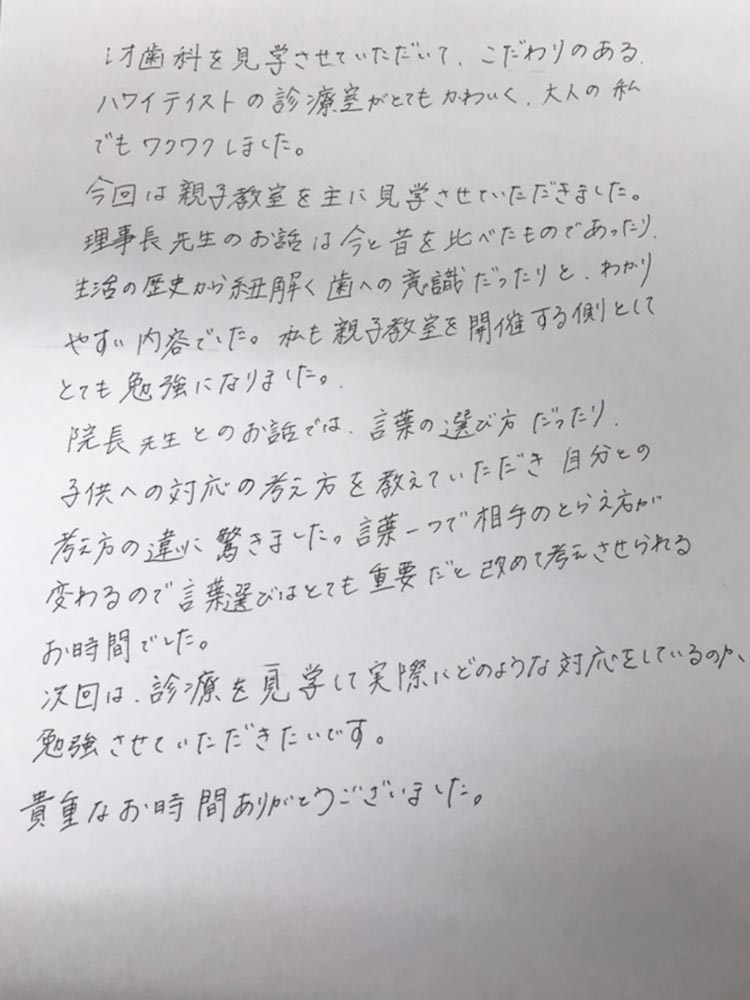 レオ歯科を見学させていただいて、こだわりのある、
ハワイテイストの診療室がとてもかわいく、大人の私
でもワクワクしました。
今回は親子教室を主に見学させていただきました。
理事長先生のお話は今と昔を比べたものであったり、
生活の歴史から紐解く歯への意識だったりと、わかり
やすい内容でした。私も親子教室を開催する側として
とても勉強になりました。
院長先生とのお話では、言葉の選び方だったり、
子供への対応の考え方を教えていただき自分との
考え方の違いに驚きました。言葉一つで相手のとらえ方が
変わるので言葉選びはとても重要だと改めて考えさせられる
お時間でした。
次回は、診療を見学して実際にどのような対応をしているのか、
勉強させていただきたいです。
貴重なお時間ありがとうございました。